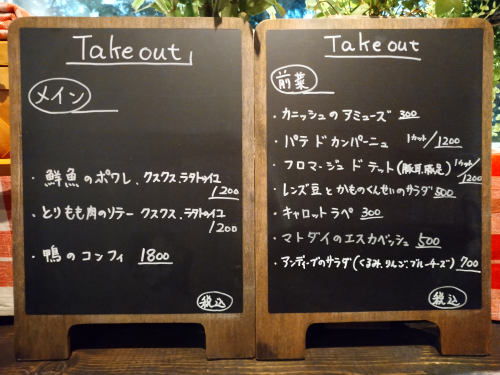 Take out
メイン
・鮮魚のポワレ、クスクス、ラタトゥイユ
1200
・とりもも肉のソテー クスクス、ラタトゥイユ
1200
・鴨のコンフィ 1800
税込
Take out
前菜
・カニッシュのアミューズ 300
・パテ ド カンパーニュ 1カット/1200
・フロマージュ ド テット(豚耳、豚足) 1カット/1200
・レンズ豆とかものくんせいのサラダ 500
・キャロット ラペ 300
・マトダイのエスカベッシュ 500
・アンディーブのサラダ(くるみ、りんご、ブルーチーズ) 700
税込